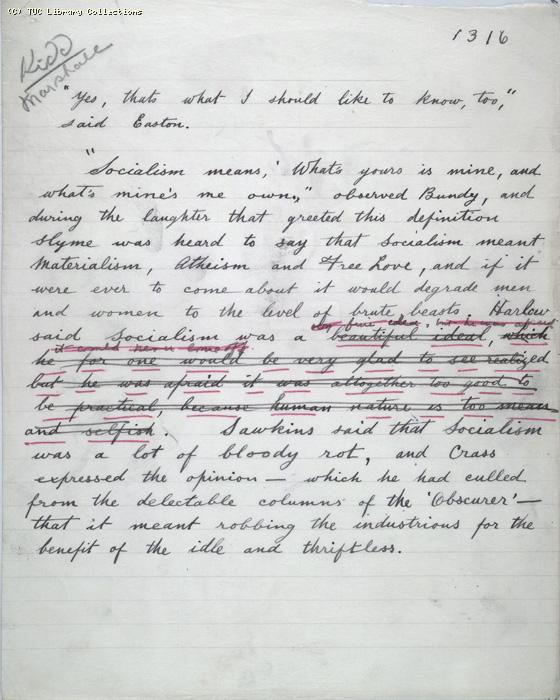 (C) TUC Library Collections
1316
Kidd
Marshall
"Yes, thats what I should like to know, too,"
said Easton.
"Socialism means, 'What's yours is mine, and
what's mine's me own,'" observed Bundy, and
during the laughter that greeted this definition
Slyme was heard to say that Socialism meant
Materialism, Atheism and Free Love, and if it
were ever to come about it would degrade men
and women to the level of brute beasts. Harlow
fine idea, but he was afraid
said Socialism was a beautiful ideal, which
it would never
he for one would be very glad to see realized
but he was afraid it was altogether too good to
be practical, because human nature is too mean
and selfish. Sawkins said that Socialism
was a lot of bloody rot, and Crass
expressed the opinion — which he had culled
from the delectable columns of the 'Obscurer' —
that it meant robbing the industrious for the
benefit of the idle and thriftless.